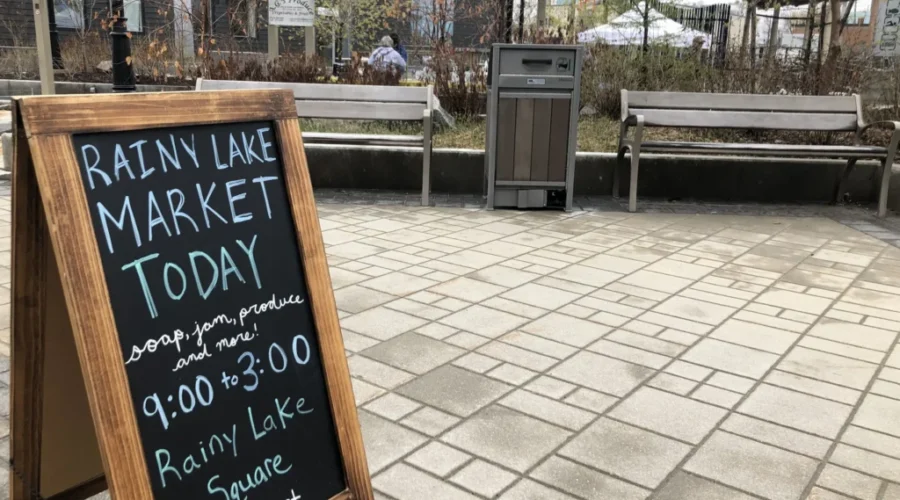 RAINY LAKE
MARKET
TODAY
soap, jam, produce
and more!
9:00 to 3:00
Rainy Lake
Square